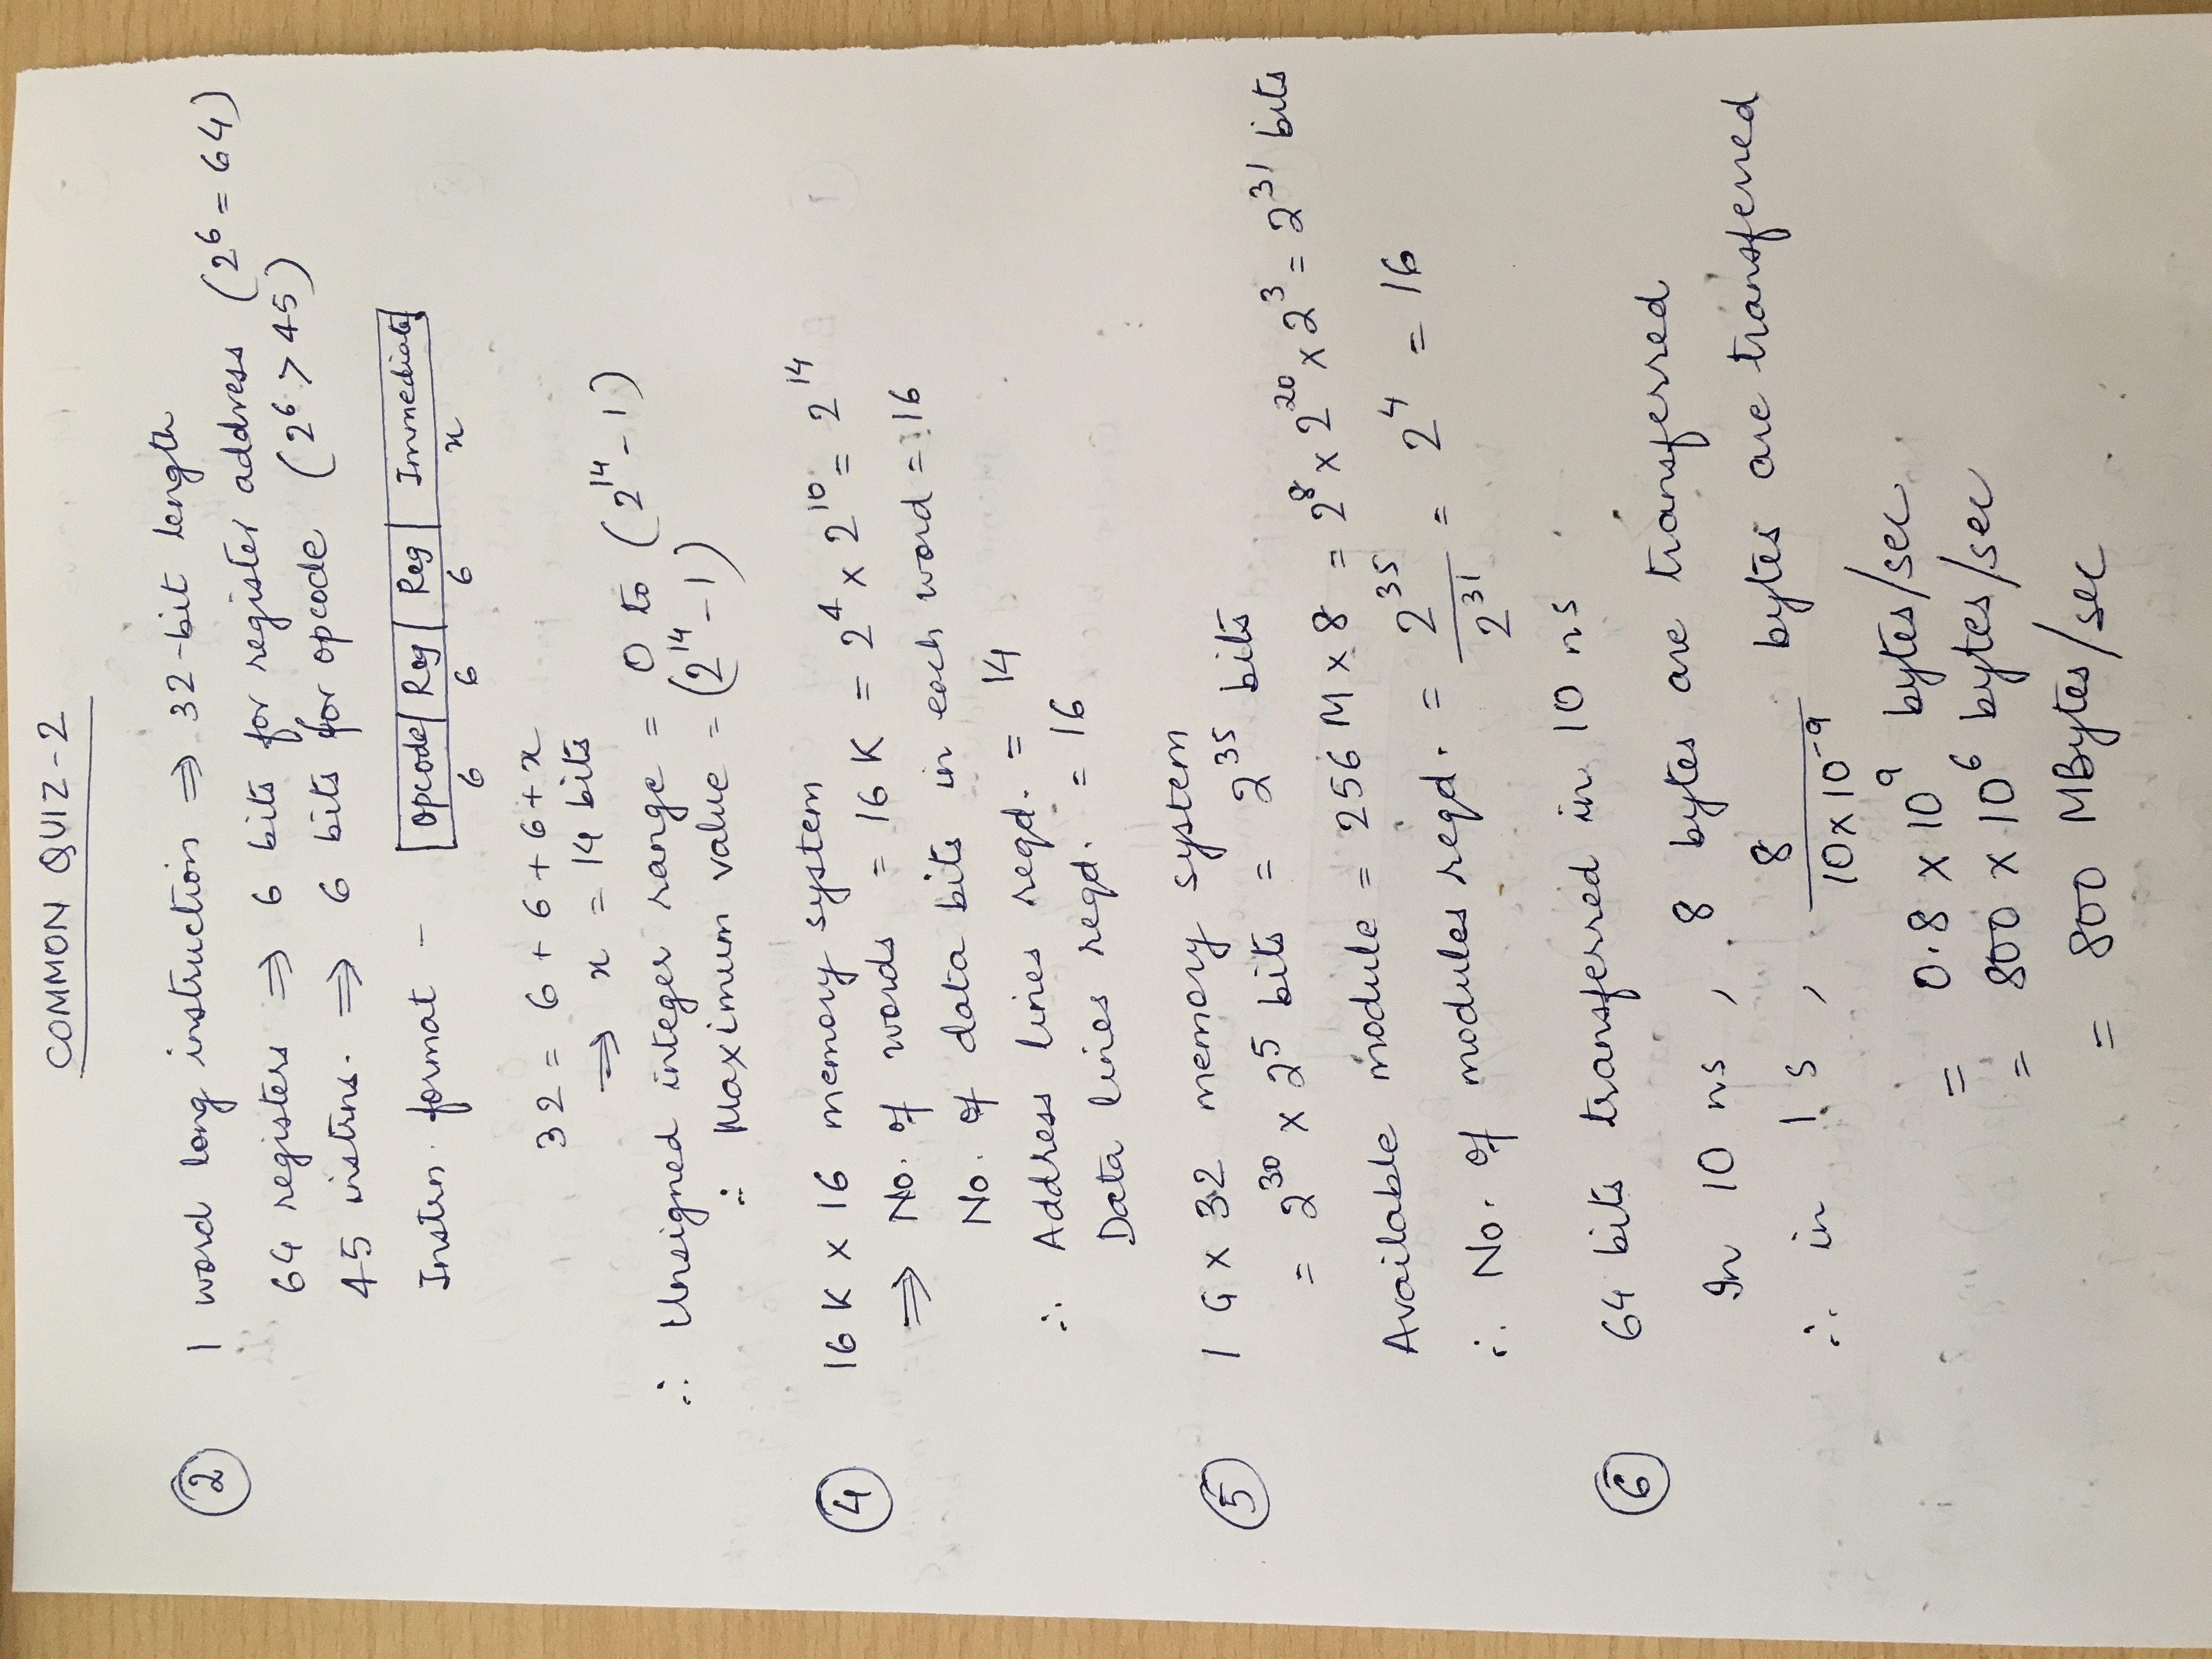 COMMON QUIZ-2
② 1 word long instruction ⇒ 32-bit length
64 registers ⇒ 6 bits for register address (2^6 = 64)
45 instrns. ⇒ 6 bits for opcode (2^6 > 45)
Instrn. format - | Opcode | Reg | Reg | Immediate |
6 6 6 x
32 = 6 + 6 + 6 + x
⇒ x = 14 bits
∴ Unsigned integer range = 0 to (2^14 - 1)
∴ Maximum value = (2^14 - 1)
④ 16 K × 16 memory system
⇒ No. of words = 16 K = 2^4 × 2^10 = 2^14
No. of data bits in each word = 16
∴ Address lines reqd. = 14
Data lines reqd. = 16
⑤ 1 G × 32 memory system
= 2^30 × 2^5 bits = 2^35 bits
Available module = 256 M × 8 = 2^8 × 2^20 × 2^3 = 2^31 bits
∴ No. of modules reqd. = 2^35 / 2^31 = 2^4 = 16
⑥ 64 bits transferred in 10 ns
In 10 ns, 8 bytes are transferred
∴ in 1 s, 8 / 10×10^-9 bytes are transferred
= 0.8 × 10^9 bytes/sec
= 800 × 10^6 bytes/sec
= 800 MBytes/sec